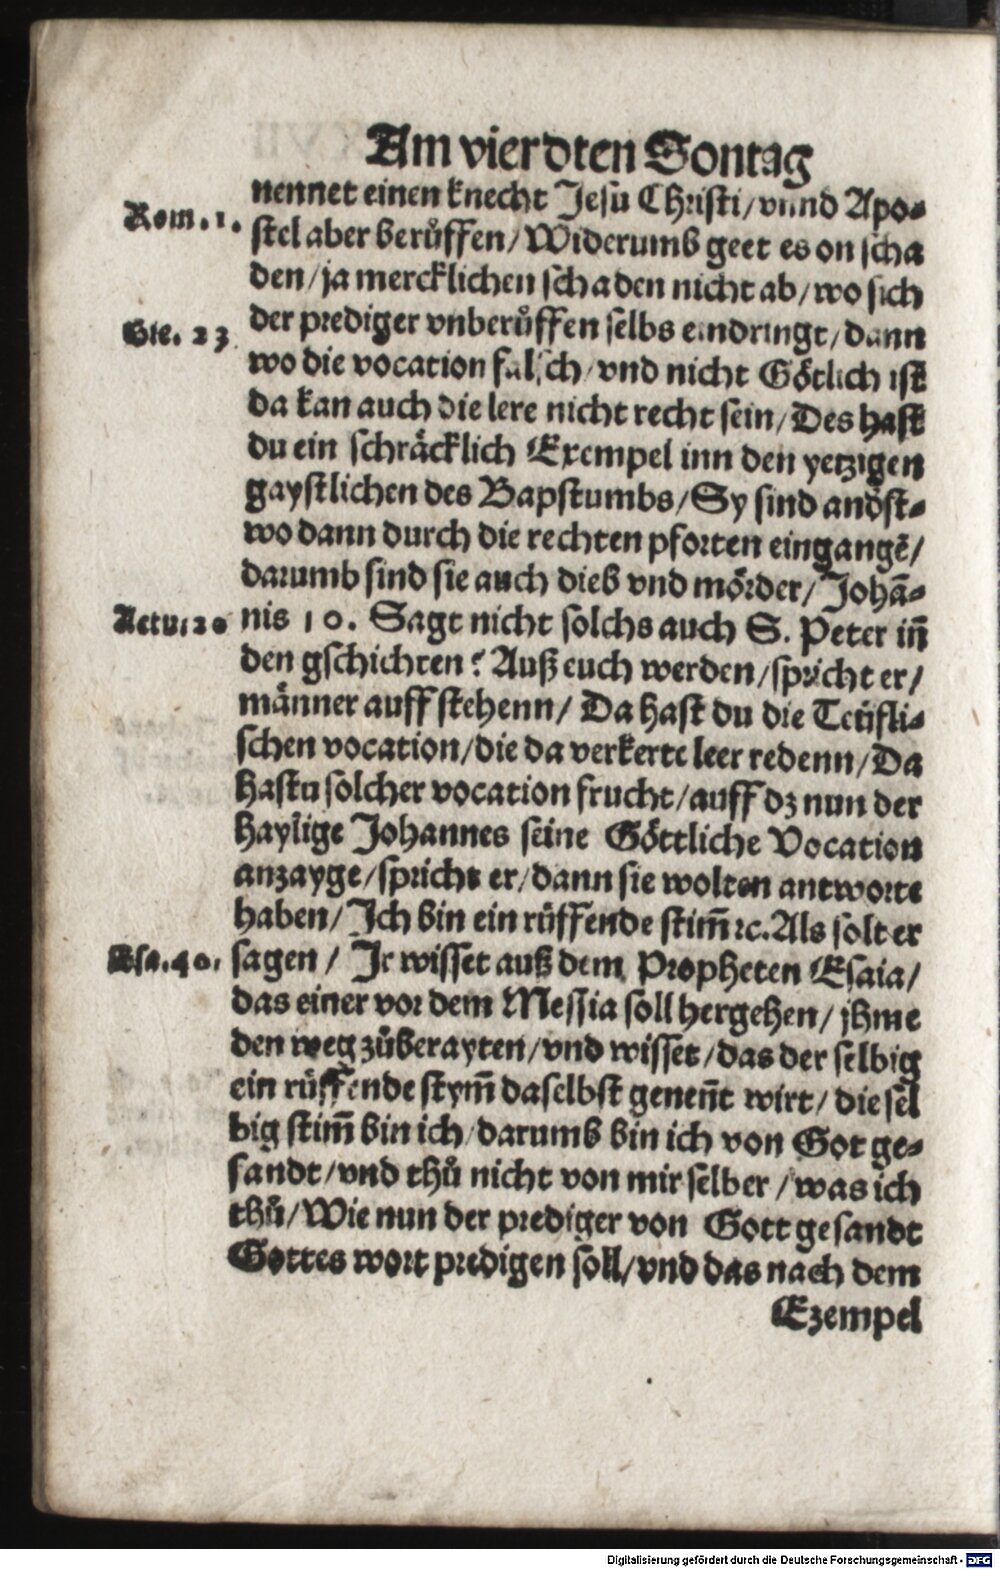 Am vierdten Sontag
nennet einen knecht Jesu Christi/ vnnd Apo⸗
Rom. 1.
stel aber berůffen/ Widerumb geet es on scha
den/ ja mercklichen schaden nicht ab/ wo sich
der prediger vnberůffen selbs eindringt/ dann
Jere. 23
wo die vocation falsch/ vnd nicht Götlich ist
da kan auch die lere nicht recht sein/ Des hast
du ein schräcklich Exempel inn den yetzigen
gaystlichen des Bapstumbs/ Sy sind andßt⸗
wo dann durch die rechten pforten eingangē/
darumb sind sie auch dieb vnd mörder/ Johā⸗
Actu: 20
nis 10. Sagt nicht solchs auch S. Peter iñ
den gschichten? Auß euch werden/ spricht er/
männer auff stehenn/ Da hast du die Teüfli⸗
schen vocation/ die da verkerte leer redenn/ Da
hastu solcher vocation frucht/ auff dz nun der
haylige Johannes seine Göttliche Vocation
anzayge/ spricht er/ dann sie wolten antworte
haben/ Ich bin ein růffende stim̄ ꝛc. Als solt er
Esa. 40.
sagen/ Ir wisset auß dem Propheten Esaia/
das einer vor dem Messia soll hergehen/ jhme
den weg zůberayten/ vnd wisset/ das der selbig
ein růffende stym̄ daselbst geneñt wirt/ die sel
big stim̄ bin ich/ darumb bin ich von Got ge⸗
sandt/ vnd thů nicht von mir selber/ was ich
thů/ Wie nun der prediger von Gott gesandt
Gottes wort predigen soll/ vnd das nach dem
Exempel
Digitalisierung gefördert durch die Deutsche Forschungsgemeinschaft - DFG